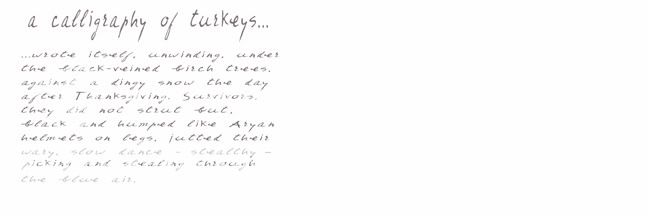 a calligraphy of turkeys...
...wrote itself, unwinding, under
the black-veined birch trees,
against a dingy snow the day
after Thanksgiving. Survivors,
they did not strut but,
black and humped like Aryan
helmets on legs, jutted their
wary, slow dance - stealthy -
picking and stealing through
the blue air.